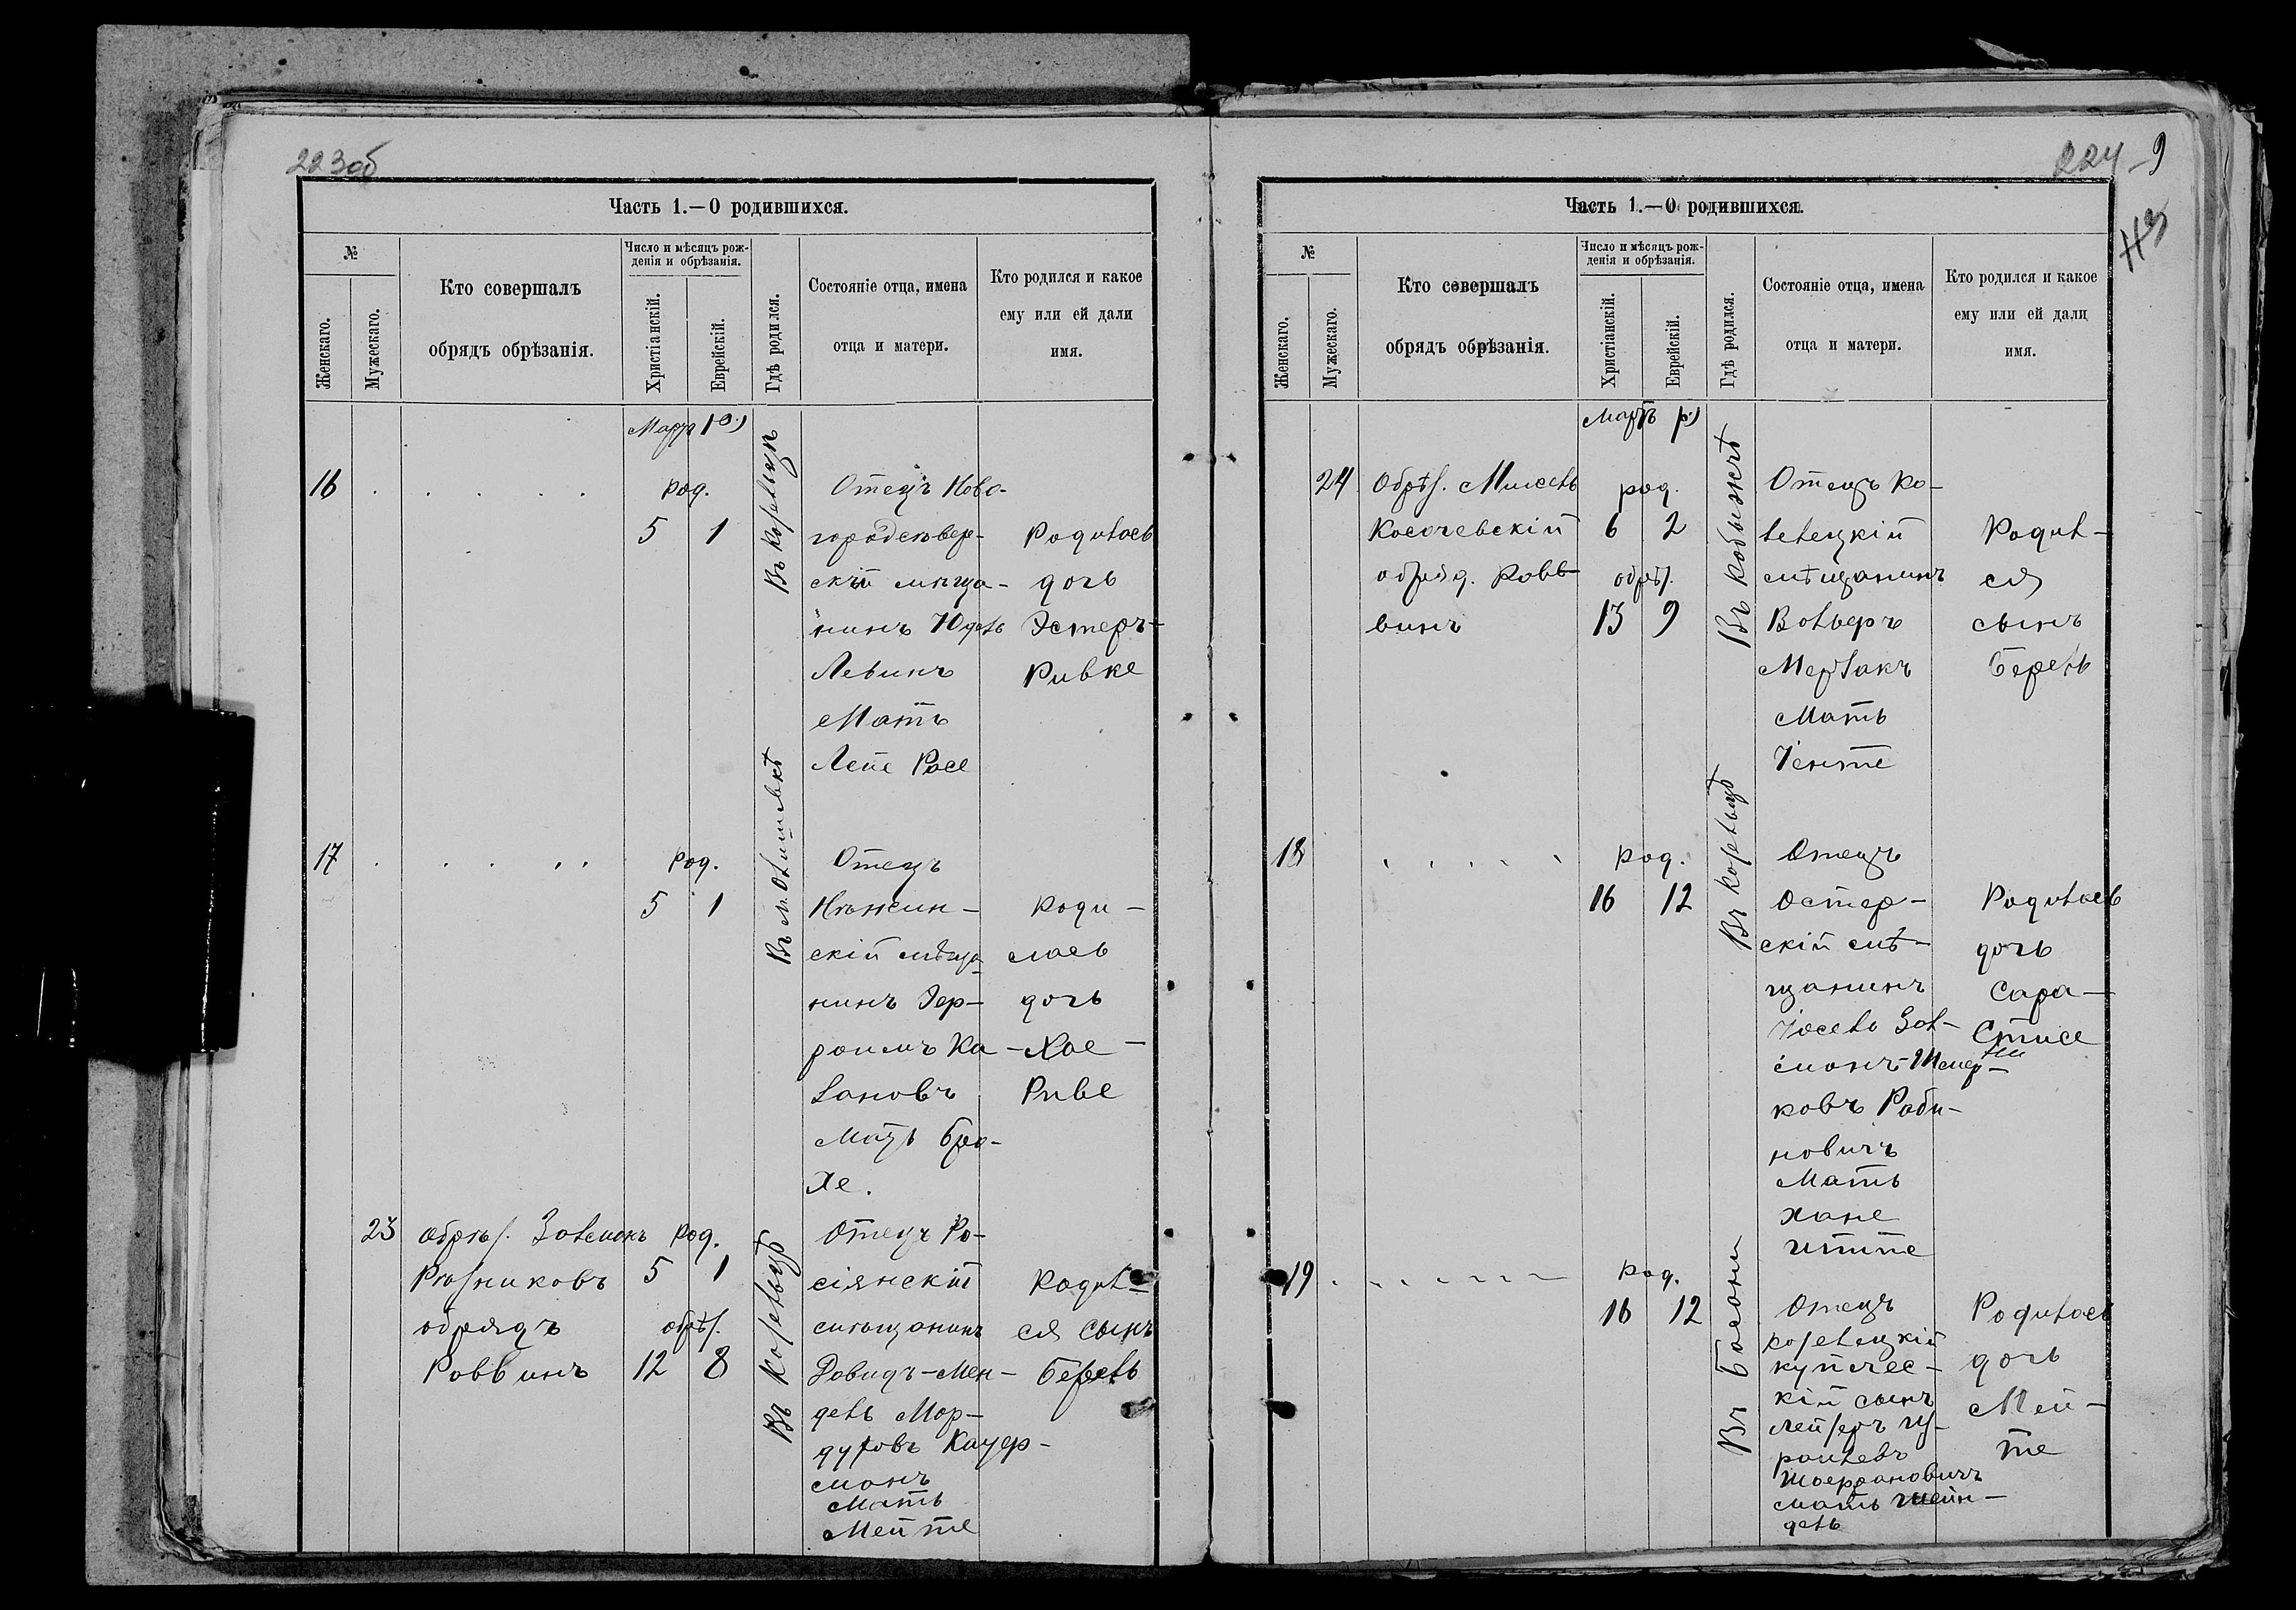 223об
Часть 1.—О родившихся.
№
Женскаго.
Мужескаго.
Кто совершалъ
обрядъ обрѣзанія.
Число и мѣсяцъ рож-
денія и обрѣзанія.
Христіанскій.
Еврейскій.
Гдѣ родился.
Состояніе отца, имена
отца и матери.
Кто родился и какое
ему или ей дали
имя.
Мартъ
16
род.
5 1
Въ Козельцѣ
Отецъ Ново-
городсѣвер-
скій мѣща-
нинъ Юдель
Левинъ
Мать
Лепе Расе
Родилась
дочь
Эстеръ-
Ривке
17
род.
5 1
Въ м. Олишевкѣ
Отецъ
Нѣжин-
скій мѣща-
нинъ Эф-
роимъ Ка-
гановъ
Мать Бра-
хе.
Роди-
лась
дочь
Хае-
Риве
23
обрѣз. Залманъ
Рюзниковъ
обрядъ
Раввинъ
род.
5 1
обрѣз.
12 8
Въ Козельцѣ
Отецъ Ро-
сіянскій
мѣщанинъ
Довидъ-Мен-
дель Мор-
духовъ Кауф-
манъ
Мать
Мейте
Родил-
ся сынъ
Берель
224 9
Часть 1.—О родившихся.
№
Женскаго.
Мужескаго.
Кто совершалъ
обрядъ обрѣзанія.
Число и мѣсяцъ рож-
денія и обрѣзанія.
Христіанскій.
Еврейскій.
Гдѣ родился.
Состояніе отца, имена
отца и матери.
Кто родился и какое
ему или ей дали
имя.
Мартъ
24
Обрѣз. Мисель
Косачевскій
обряд. Равв-
винъ
род.
6 2
обрѣз.
13 9
Въ Кобыжчѣ
Отецъ Ко-
зелецкій
мѣщанинъ
Вольфъ
Мерзакъ
Мать
Іенте
Родил-
ся
сынъ
Берель
18
род.
16 12
Въ Козельцѣ
Отецъ
Остер-
скій мѣ-
щанинъ
Іосель Зал-
манъ-Шмер-
ковъ Раби-
новичъ
Мать
Хане
Итте
Родилась
дочь
Сара-
Стисе
19
род.
16 12
Въ Басани
Отецъ
Козелецкій
купчес-
кій сынъ
Лейзеръ Из-
раилевъ
мать Шейн-
дель
Родилась
дочь
Мей-
те